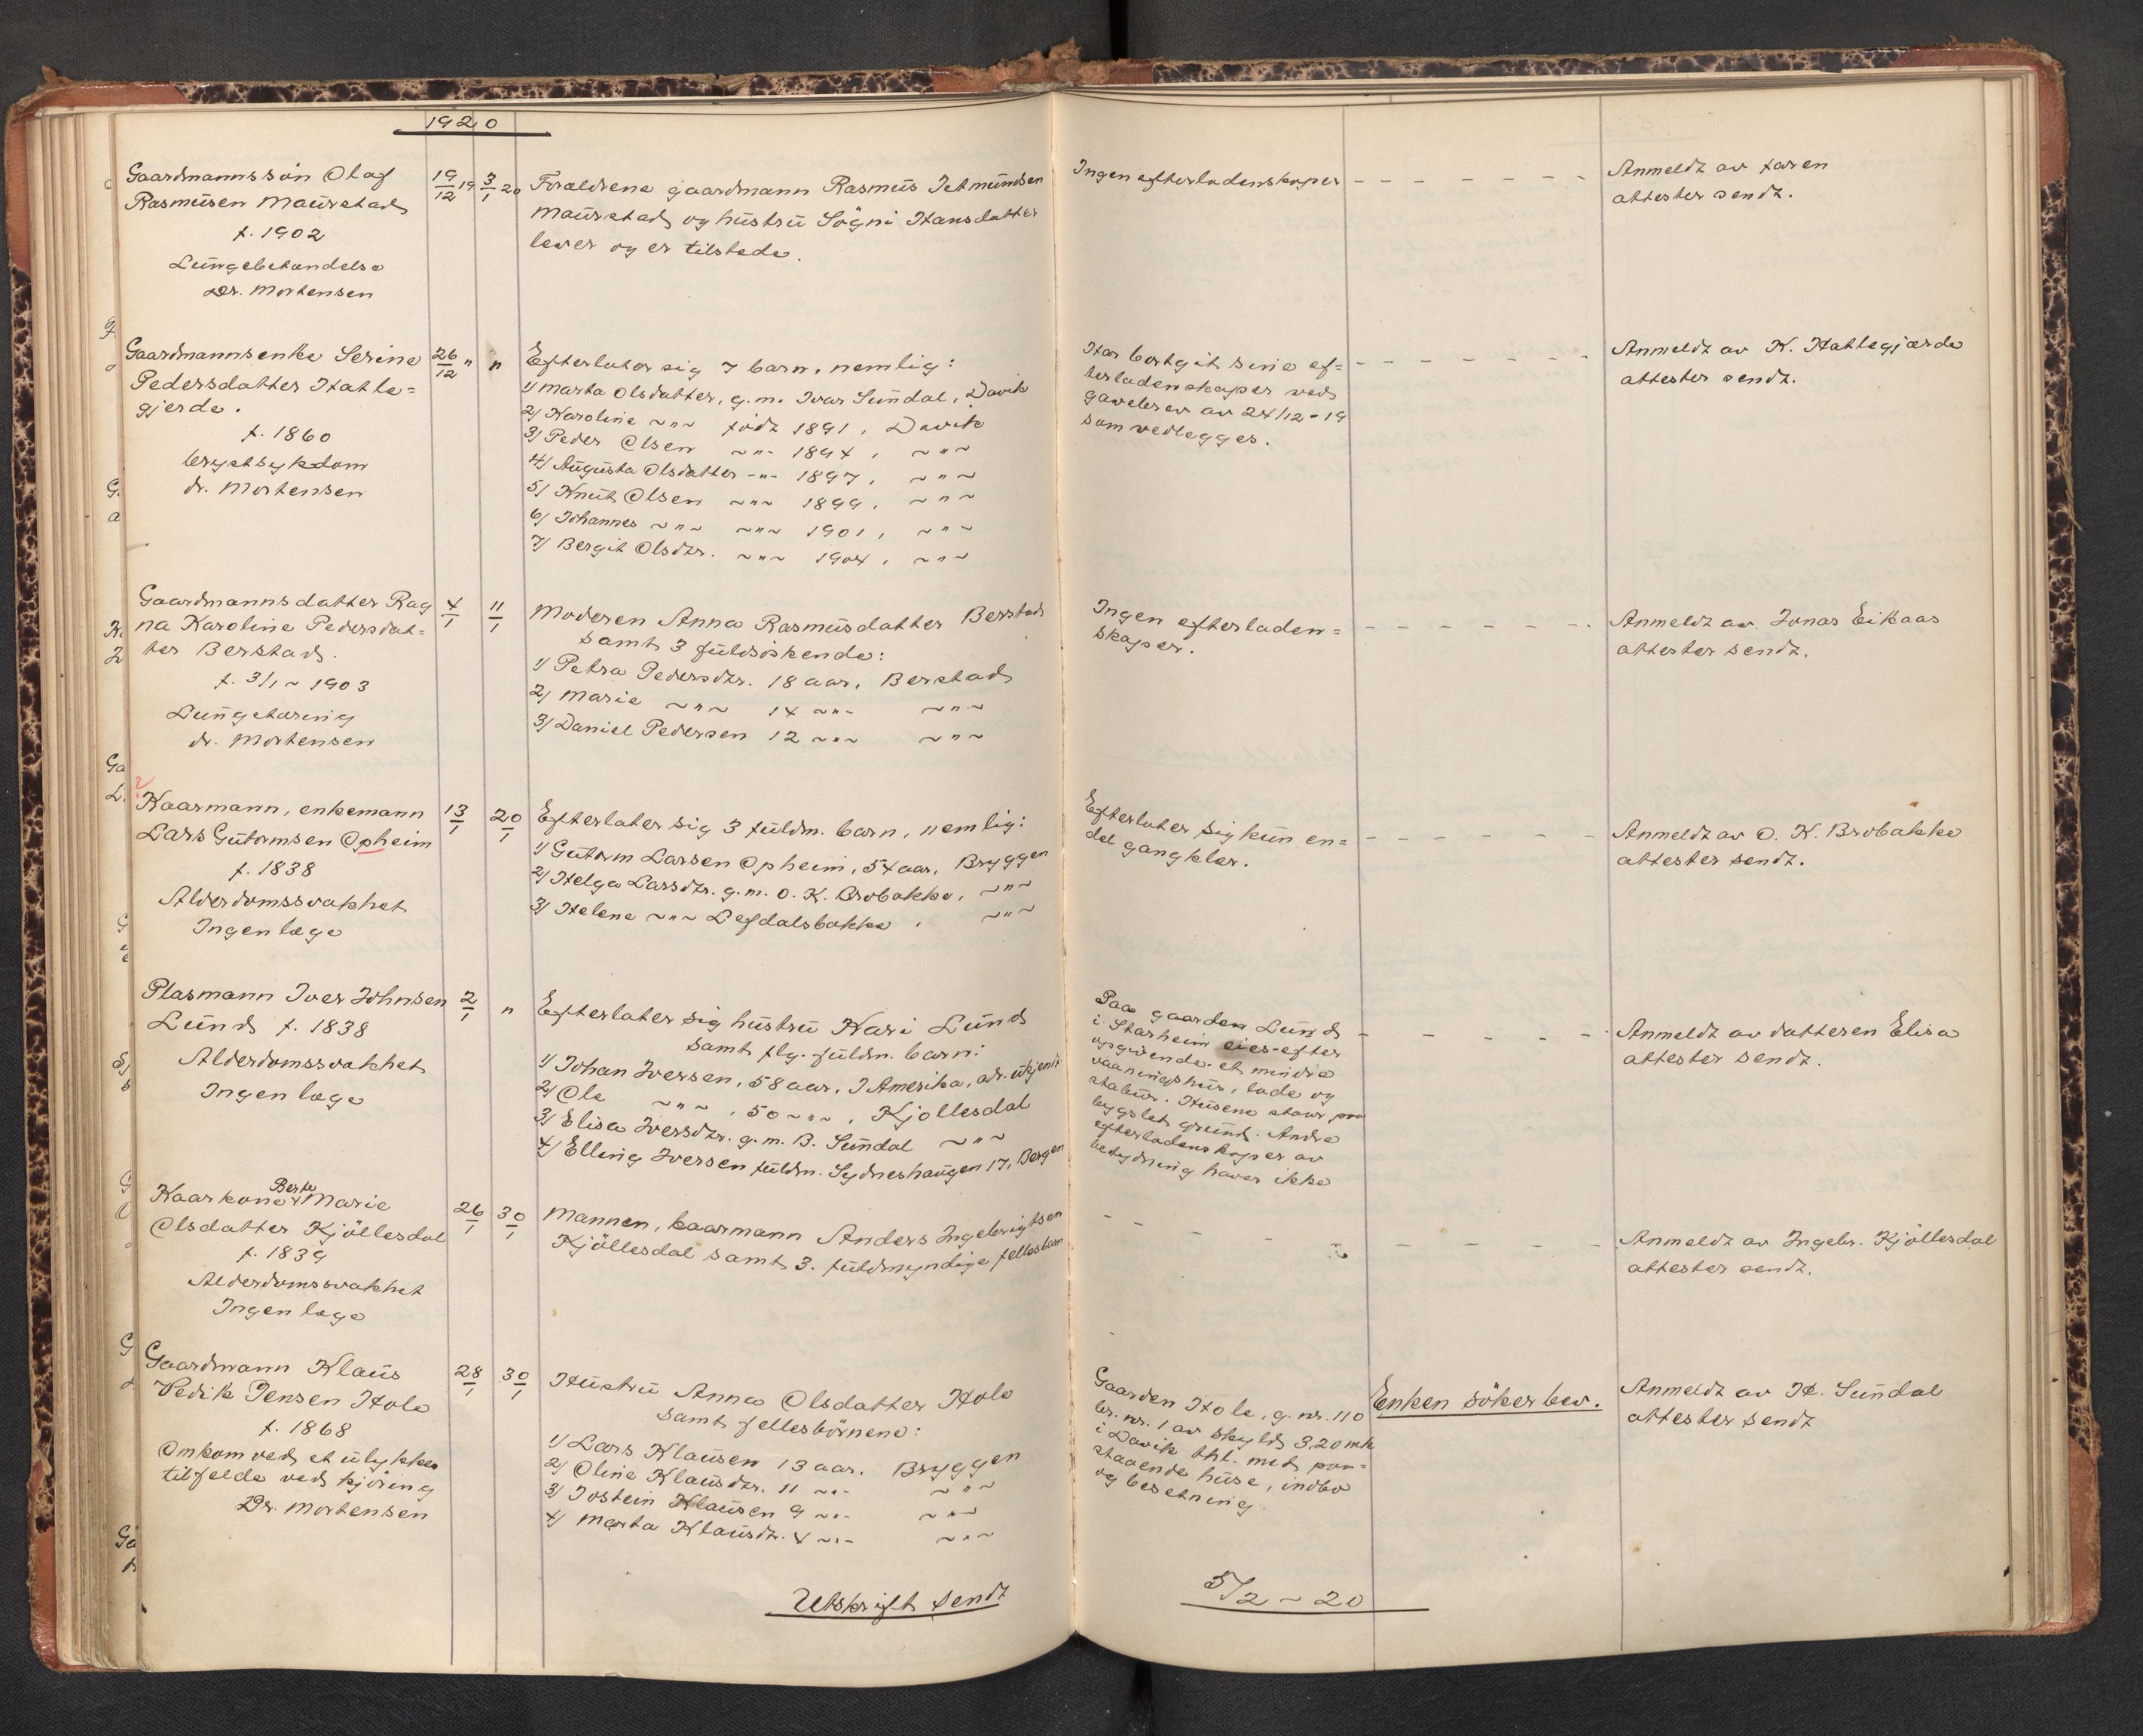 1920
Gaardmannssön Olaf
Rasmusen Maurstad
f. 1902
Lungebetendelse
Dr. Mortensen
19/12 19
3/1 20
Foreldrene gaardmann Rasmus Ietmundsen
Maurstad og hustru Sögni Hansdatter
lever og er tilstede.
Ingen efterladenskaper - - - - - - -
Anmeldt av faren
attester sendt.
Gaardmannsenke Serine
Pedersdatter Hatle-
gjerde.
f. 1860
brystsykdom
dr. Mortensen
26/12 "
"
Efterlater sig 7 barn, nemlig:
1) Marta Olsdatter, g.m. Ivar Sundal, Davik
2) Karoline ~"~ född 1891, Davik
3) Peder Olsen ~"~ 1894, ~"~
4) Augusta Olsdatter ~"~ 1897, ~"~
5) Knut Olsen ~"~ 1899, ~"~
6) Johannes ~"~ ~"~ 1901, ~"~
7) Bergit Olsdtr. ~"~ 1904, ~"~
Har bortgit sine ef= - - - - - - -
terladenskaper ved
gavebrev av 24/12-19
som vedlegges.
Anmeldt av K. Hatlegjærde
attester sendt.
Gaardmannsdatter Rag
na Karoline Pedersdat=
ter Berstad.
f. 3/1 ~ 1903
Lungetæring
dr. Mortensen
4/1
11/1
Moderen Anna Rasmusdatter Berstad
samt 3 fuldsöskende:
1) Petra Pedersdtr. 18 aar, Berstad
2) Marie ~"~ 14 ~"~ ~"~
3) Daniel Pedersen 12 ~"~ ~"~
Ingen efterladen= - - - - - - -
skaper.
Anmeldt av Jonas Eikaas
attester sendt.
Kaarmann, enkemann
Lars Gutormsen Opheim
f. 1838
Alderdomssvakhet
Ingen læge
13/1
20/1
Efterlater sig 3 fuldm. barn, nemlig:
1) Gutorm Larsen Opheim, 54 aar, Bryggen
2) Helga Larsdtr. g.m. O. K. Brobakke, ~"~
3) Helene ~"~ Lefdalsbakke, ~"~
Efterlater sig kun en= - - - - - - -
del gangklær.
Anmeldt av O. K. Brobakke
attester sendt.
Plasmann Iver Johnsen
Lund f. 1838
Alderdomssvakhet
Ingen læge
2/1
"
Efterlater sig hustru Kari Lund
samt flg. fuldm. barn:
1) Johan Iversen, 58 aar, I Amerika, adr. ukjendt
2) Ole ~"~, 50 ~"~, Kjøllesdal
3) Elisa Iversdtr. g.m. B. Sundal ~"~
4) Elling Iversen fuldm. Sydneshaugen 17, Bergen
Paa gaarden Lund - - - - -
i Starheim eies efter
opgivende et mindre
vaaningshus, lade og
stabur. Husene staar paa
bygslet grund. Andre
efterladenskaper av
betydning haves ikke
Anmeldt av datteren Elisa
attester sendt.
Kaarkone Berte Marie
Olsdatter Kjöllesdal
f. 1839
Alderdomssvakhet
Ingen læge
26/1
30/1
Mannen, kaarmann Anders Ingebrigtsen
Kjöllesdal samt 3. fuldmyndige fellesbarn
- - - - - - - - -
Anmeldt av Ingebr. Kjöllesdal
attester sendt.
Gaardmann Klaus
Vedik Jensen Hole
f. 1868
Omkom ved et ulykkes
tilfelde ved kjöring
Dr. Mortensen
28/1
30/1
Hustru Anna Olsdatter Hole
samt fellesbörnene:
1) Lars Klausen 13 aar. Bryggen
2) Oline Klausdtr. 11 ~"~ ~"~
3) Jostein Klausen 9 ~"~ ~"~
4) Marta Klausdt. 4 ~"~ ~"~
Gaarden Hole, g. nr. 110
br. nr. 1 av skyld 3,20 mk
i Davik thl. med paa=
staaende huse, indbo
og besetning.
Enken söker bev.
Anmeldt av H. Sundal
attester sendt
Utskrift sendt 5/2 ~ 20